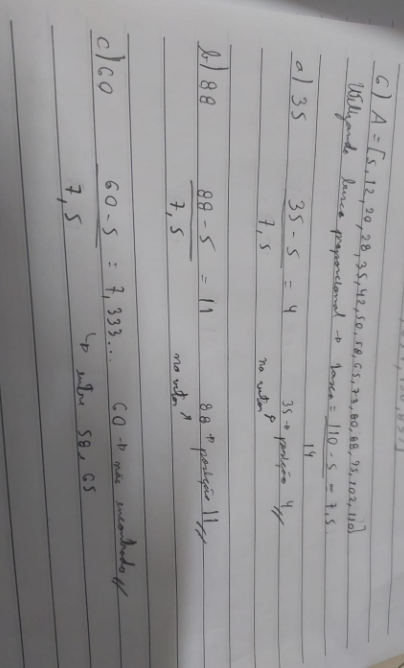 6) A = [5, 12, 20, 28, 35, 42, 50, 58, 65, 73, 80, 88, 95, 102, 110]
Utilizando busca proporcional → taxa = 110 - 5 = 7,5
14
a) 35 35 - 5 = 4 35 → posição 4 //
7,5 no vetor
b) 88 88 - 5 = 11 88 → posição 11 //
7,5 no vetor
c) 60 60 - 5 = 7,333... 60 → não encontrado //
7,5 ↳ entre 58 e 65